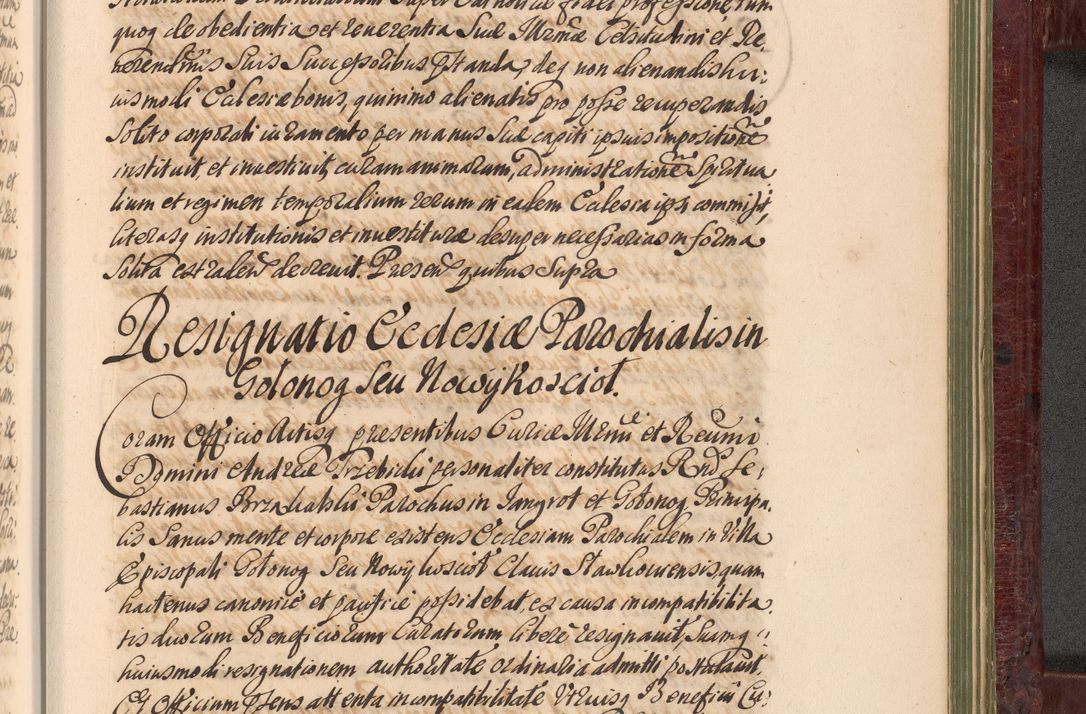 quoq de obedientia et reuerentia Suæ Illrmæ Celsitudini et Re-
uerendmis Suis Successoribus pstanda, deq non alienandis hu-
iusmodi Ecclesiæ bonis, quinimo alienatis pro posse recuperandis
Solito corporali iuramento per manus Suæ capiti ipsius impositionē
instituit et inuestiuit, curam animarum, administrationē Spiritua
lium et regimen temporalium rerum in eadem Ecclesia ipsi commisit,
literasq institutionis et inuestituræ desuper necessarias in forma
Solita extraden decreuit. Presen quibus Supra
Resignatio Ecclesiæ Parochialis in
Gołonog Seu Nowy Koscioł.
Coram Officio Actisq presentibus Curiæ Illrmi et Reumi
Domini Andreæ Trzebicki personaliter constitutus Rnds Se-
bastianus Brzuhahski Parochus in Jangrot et Gołonog Principa-
lis Sanus mente et corpore existens Ecclesiam Parochialem in Villa
Episcopali Gołonog Seu Nowy kościoł Clauis Slawkouiensis, quam
hactenus canonicè et pacificè possidebat, ex causa incompatibilita
tis duorum Beneficiorum Curatorum liberè resignauit, Suamq
huiusmodi resignationem authoritate ordinaria admitti postulauit.
Et Officium psens attenta incompatibilitate Vtriusq Beneficii Cu-